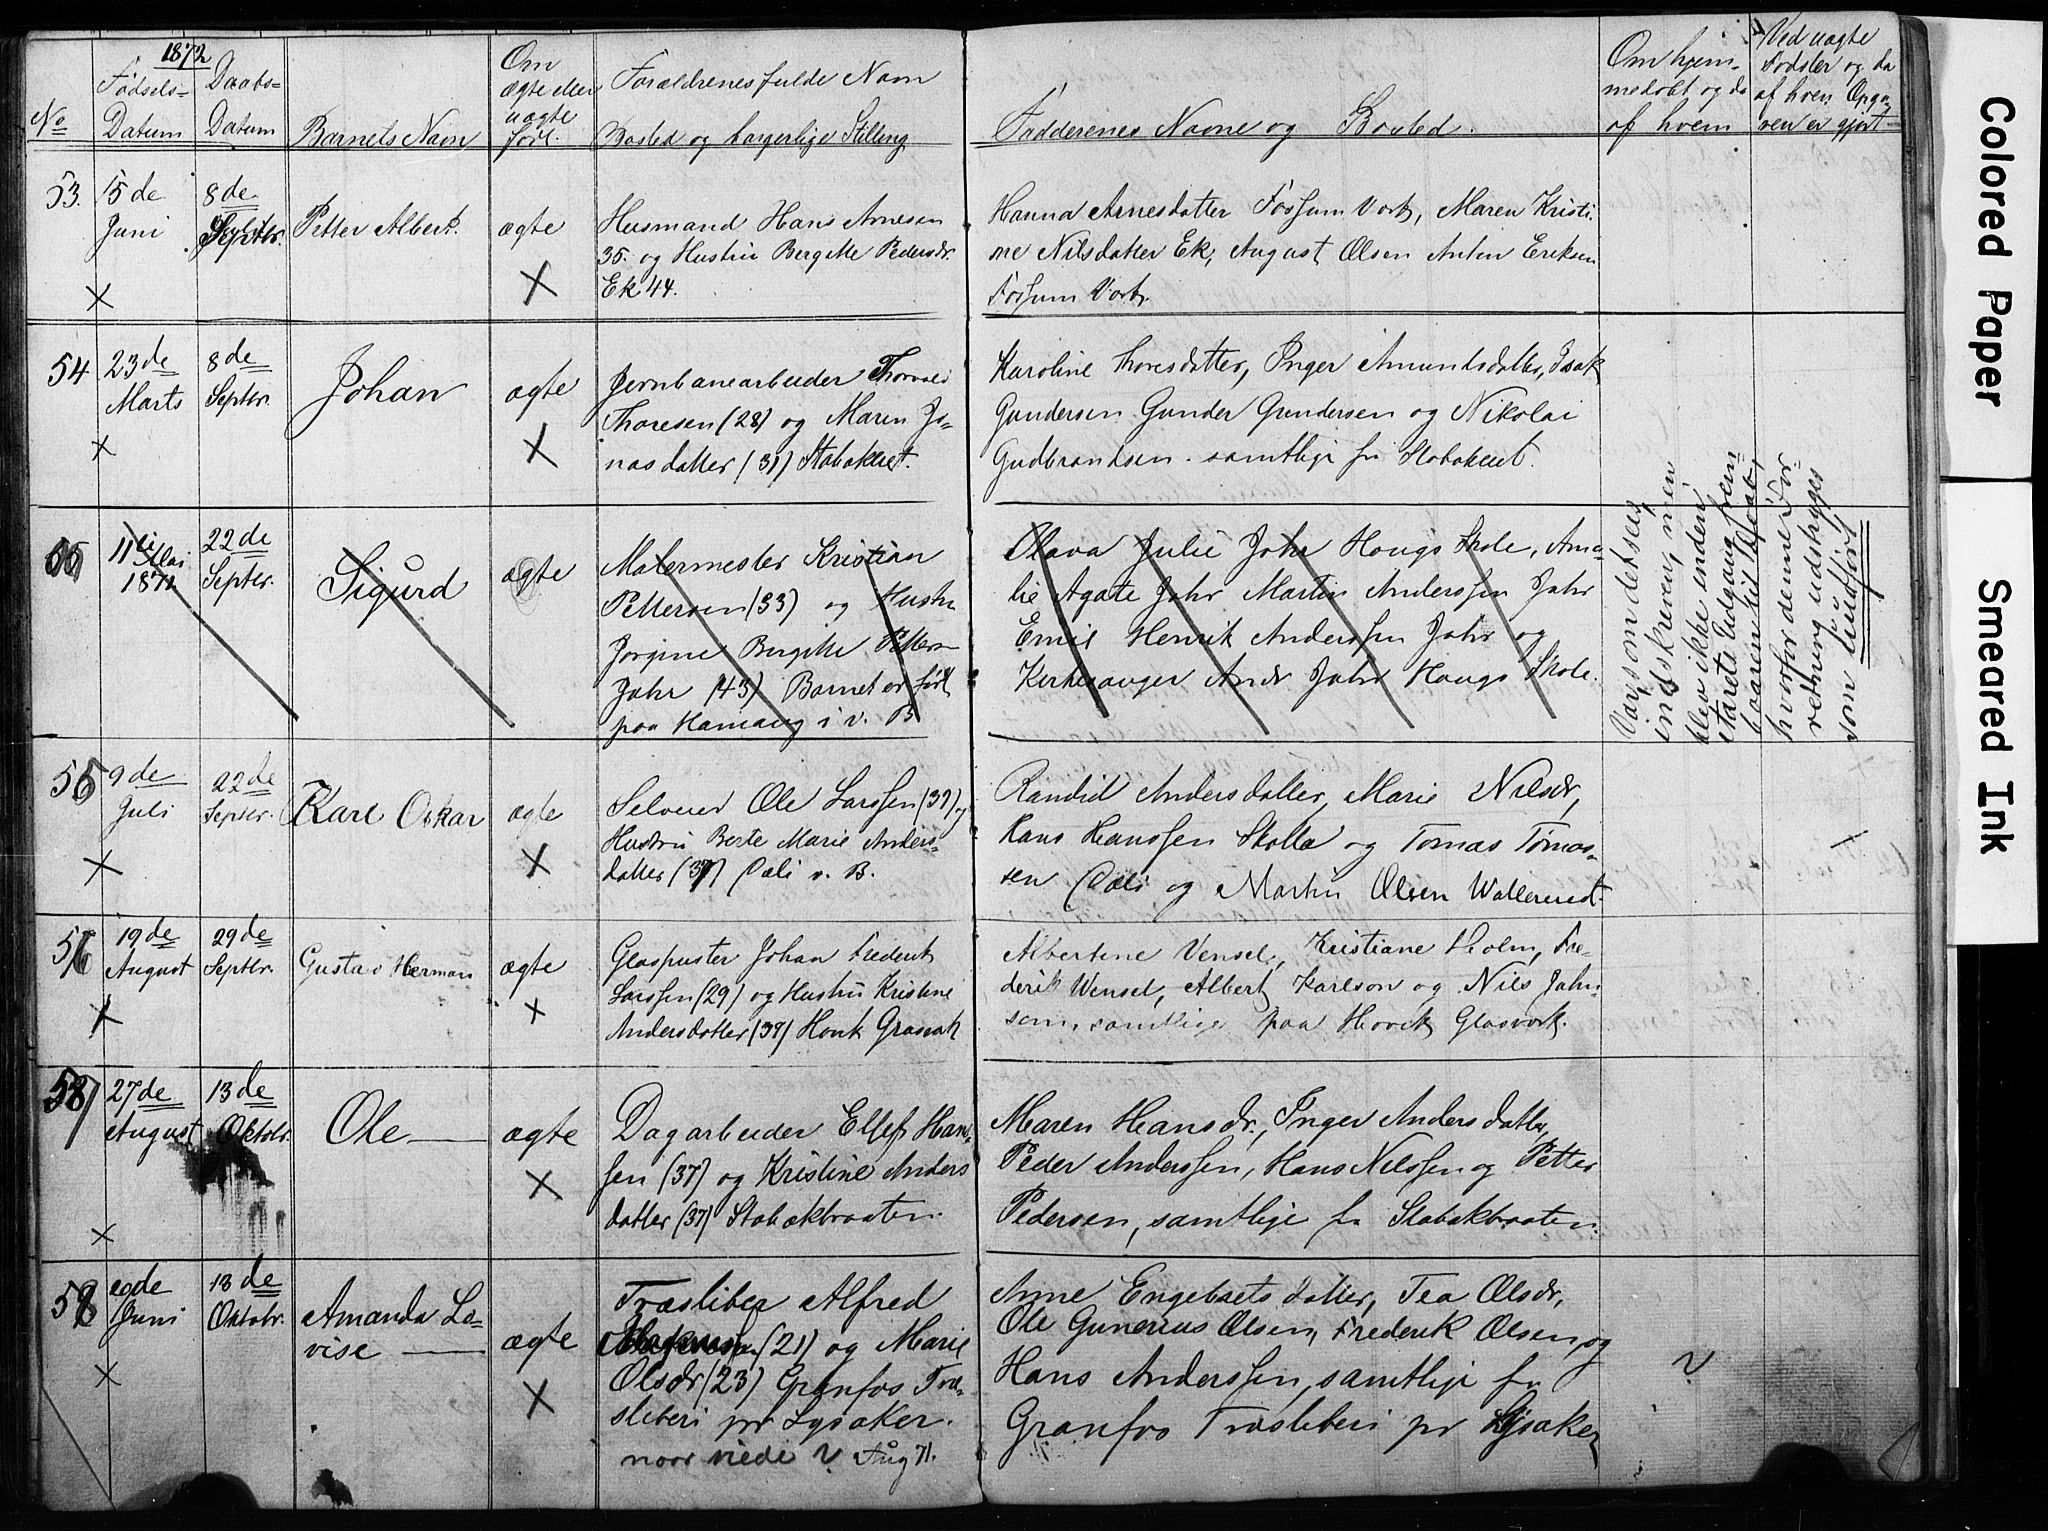 1872
No
Fødsels-
Datum
Daabs-
Datum
Barnets Navn
Om
ægte eller
uægte
født.
Forældrenes fulde Navn
Bosted og borgerlige Stilling
Fadderenes Navne og Bosted.
Om hjem-
medøbt og da
af hvem
Ved uægte
Fødsler og da
af hvem Opga-
ven er gjort
53.
15 de
Juni
8 de
Septbr.
Petter Albert.
ægte
Husmand Hans Arnesen
35. og Hustru Bergitte Pedersdr.
Ek 44.
Hanna Arnesdatter Fossum Værk, Maren Kristi-
ne Nilsdatter Ek, August Olsen Anton Eriksen
Fossum Værk.
54
23 de
Marts
8 de
Septbr.
Johan
ægte
Jernbanearbeider Thorvald
Thoresen (28) og Maren Jo-
nasdatter (31) Stabækeiet.
Karoline Thoresdatter, Inger Amundsdatter, Isak
Gundersen Gunder Gundersen og Nikolai
Gudbrandsen samtlige fr Stabækeiet.
11 te Mai
1871
22 de
Septbr.
Sigurd
ægte
Malermester Kristian
Pettersen (33) og Hustru
Jørgine Bergitte Petters
Jahr (43) Barnet er født
paa Hamang i v. B
Olava Julie Jahr Haugs Skole, Ama-
lie Agate Jahr Martin Anderssen Jahr
Emil Henrik Anderssen Jahr og
Kirkesanger Andr Jahr Haugs Skole.
Var som det sees
indskreven, men
blev ikke inden
Aarets Udgang frem-
baaren til Daab,
hvorfor denne For-
retning udskygges
som uudført
55
9 de
Juli
22 de
Septbr.
Karl Oskar
ægte
Selveier Ole Larssen (39) og
Hustru Berte Marie Anders-
datter (37) Bæli v. B.
Randid Andersdatter, Marie Nilsdr,
Hans Hanssen Skolla og Tomas Tomas-
sen Bæli og Martin Olsen Wallerud.
56
19 de
August
29 de
Septbr.
Gustav Herman
ægte
Glaspuster Johan Frederik
Larssen (29) og Hustru Kristine
Andersdatter (39) Høvik Glasværk
Albertine Vensel, Kristiane Holm, Fre-
derik Wensel, Albert Karlson og Nils Jahn-
sen, samtlige paa Høvik Glasværk.
57
27 de
August
13 de
Oktobr.
Ole
ægte
Dagarbeider Ellef Han-
sen (37) og Kristine Anders
datter (37) Stabækbraaten.
Maren Hansdr., Inger Andersdatter,
Peder Anderssen, Hans Nilssen og Petter
Pedersen, samtlige fr Stabækbraaten.
58
Juni
13 de
Oktobr.
Amanda Lo-
vise
ægte
Træsliber Alfred
(21) og Marie
Olsdr (23) Granfos Træ-
sliberi pr Lysaker.
naar viede ? Aug 71.
Anne Engebretsdatter, Tea Olsdr,
Ole Gunerius Olsen, Frederik Olsen, og
Hans Anderssen, samtlige fr
Granfos Træsliberi pr Lysaker
?
Colored Paper
Smeared Ink